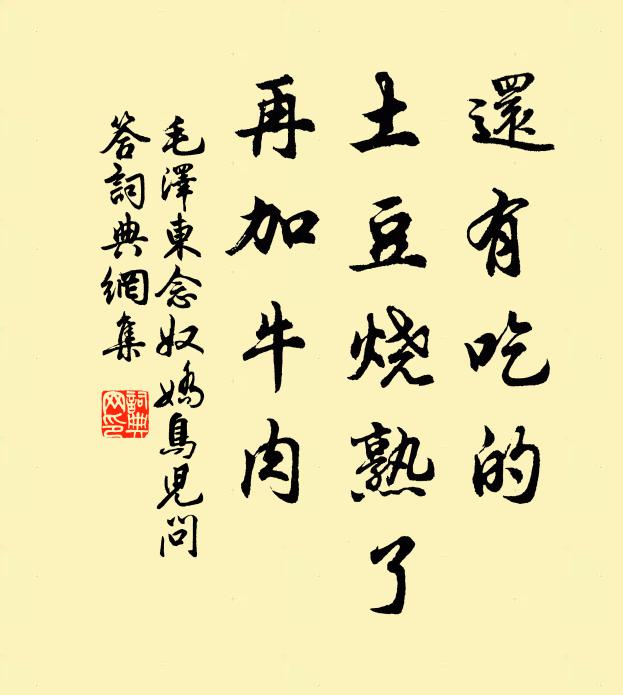 還有吃的
土豆烧熟了
再加牛肉
毛澤東念奴嬌鳥兒問
答詞典網集
詞典
网印